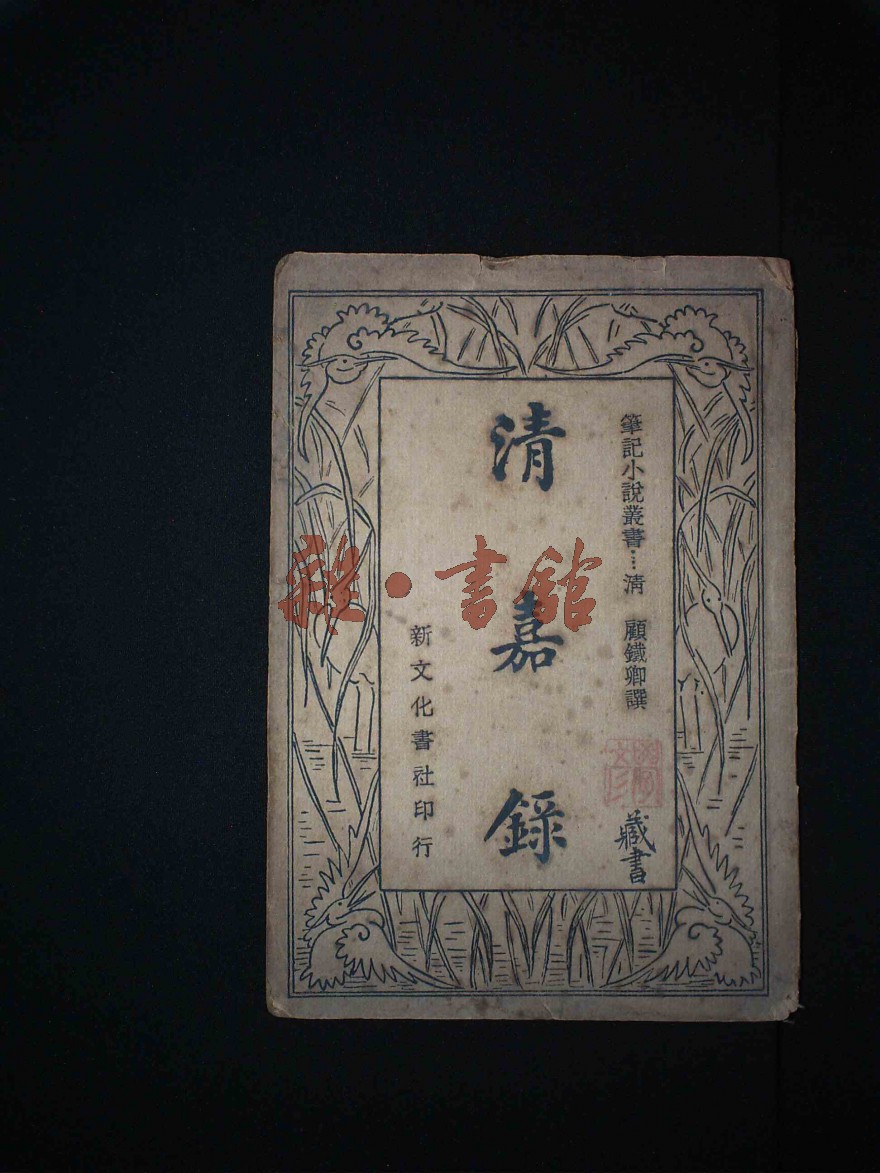 筆記小說叢書…清 顧鐵卿譔
藏書
清嘉錄
新文化書社印行
雜·書館